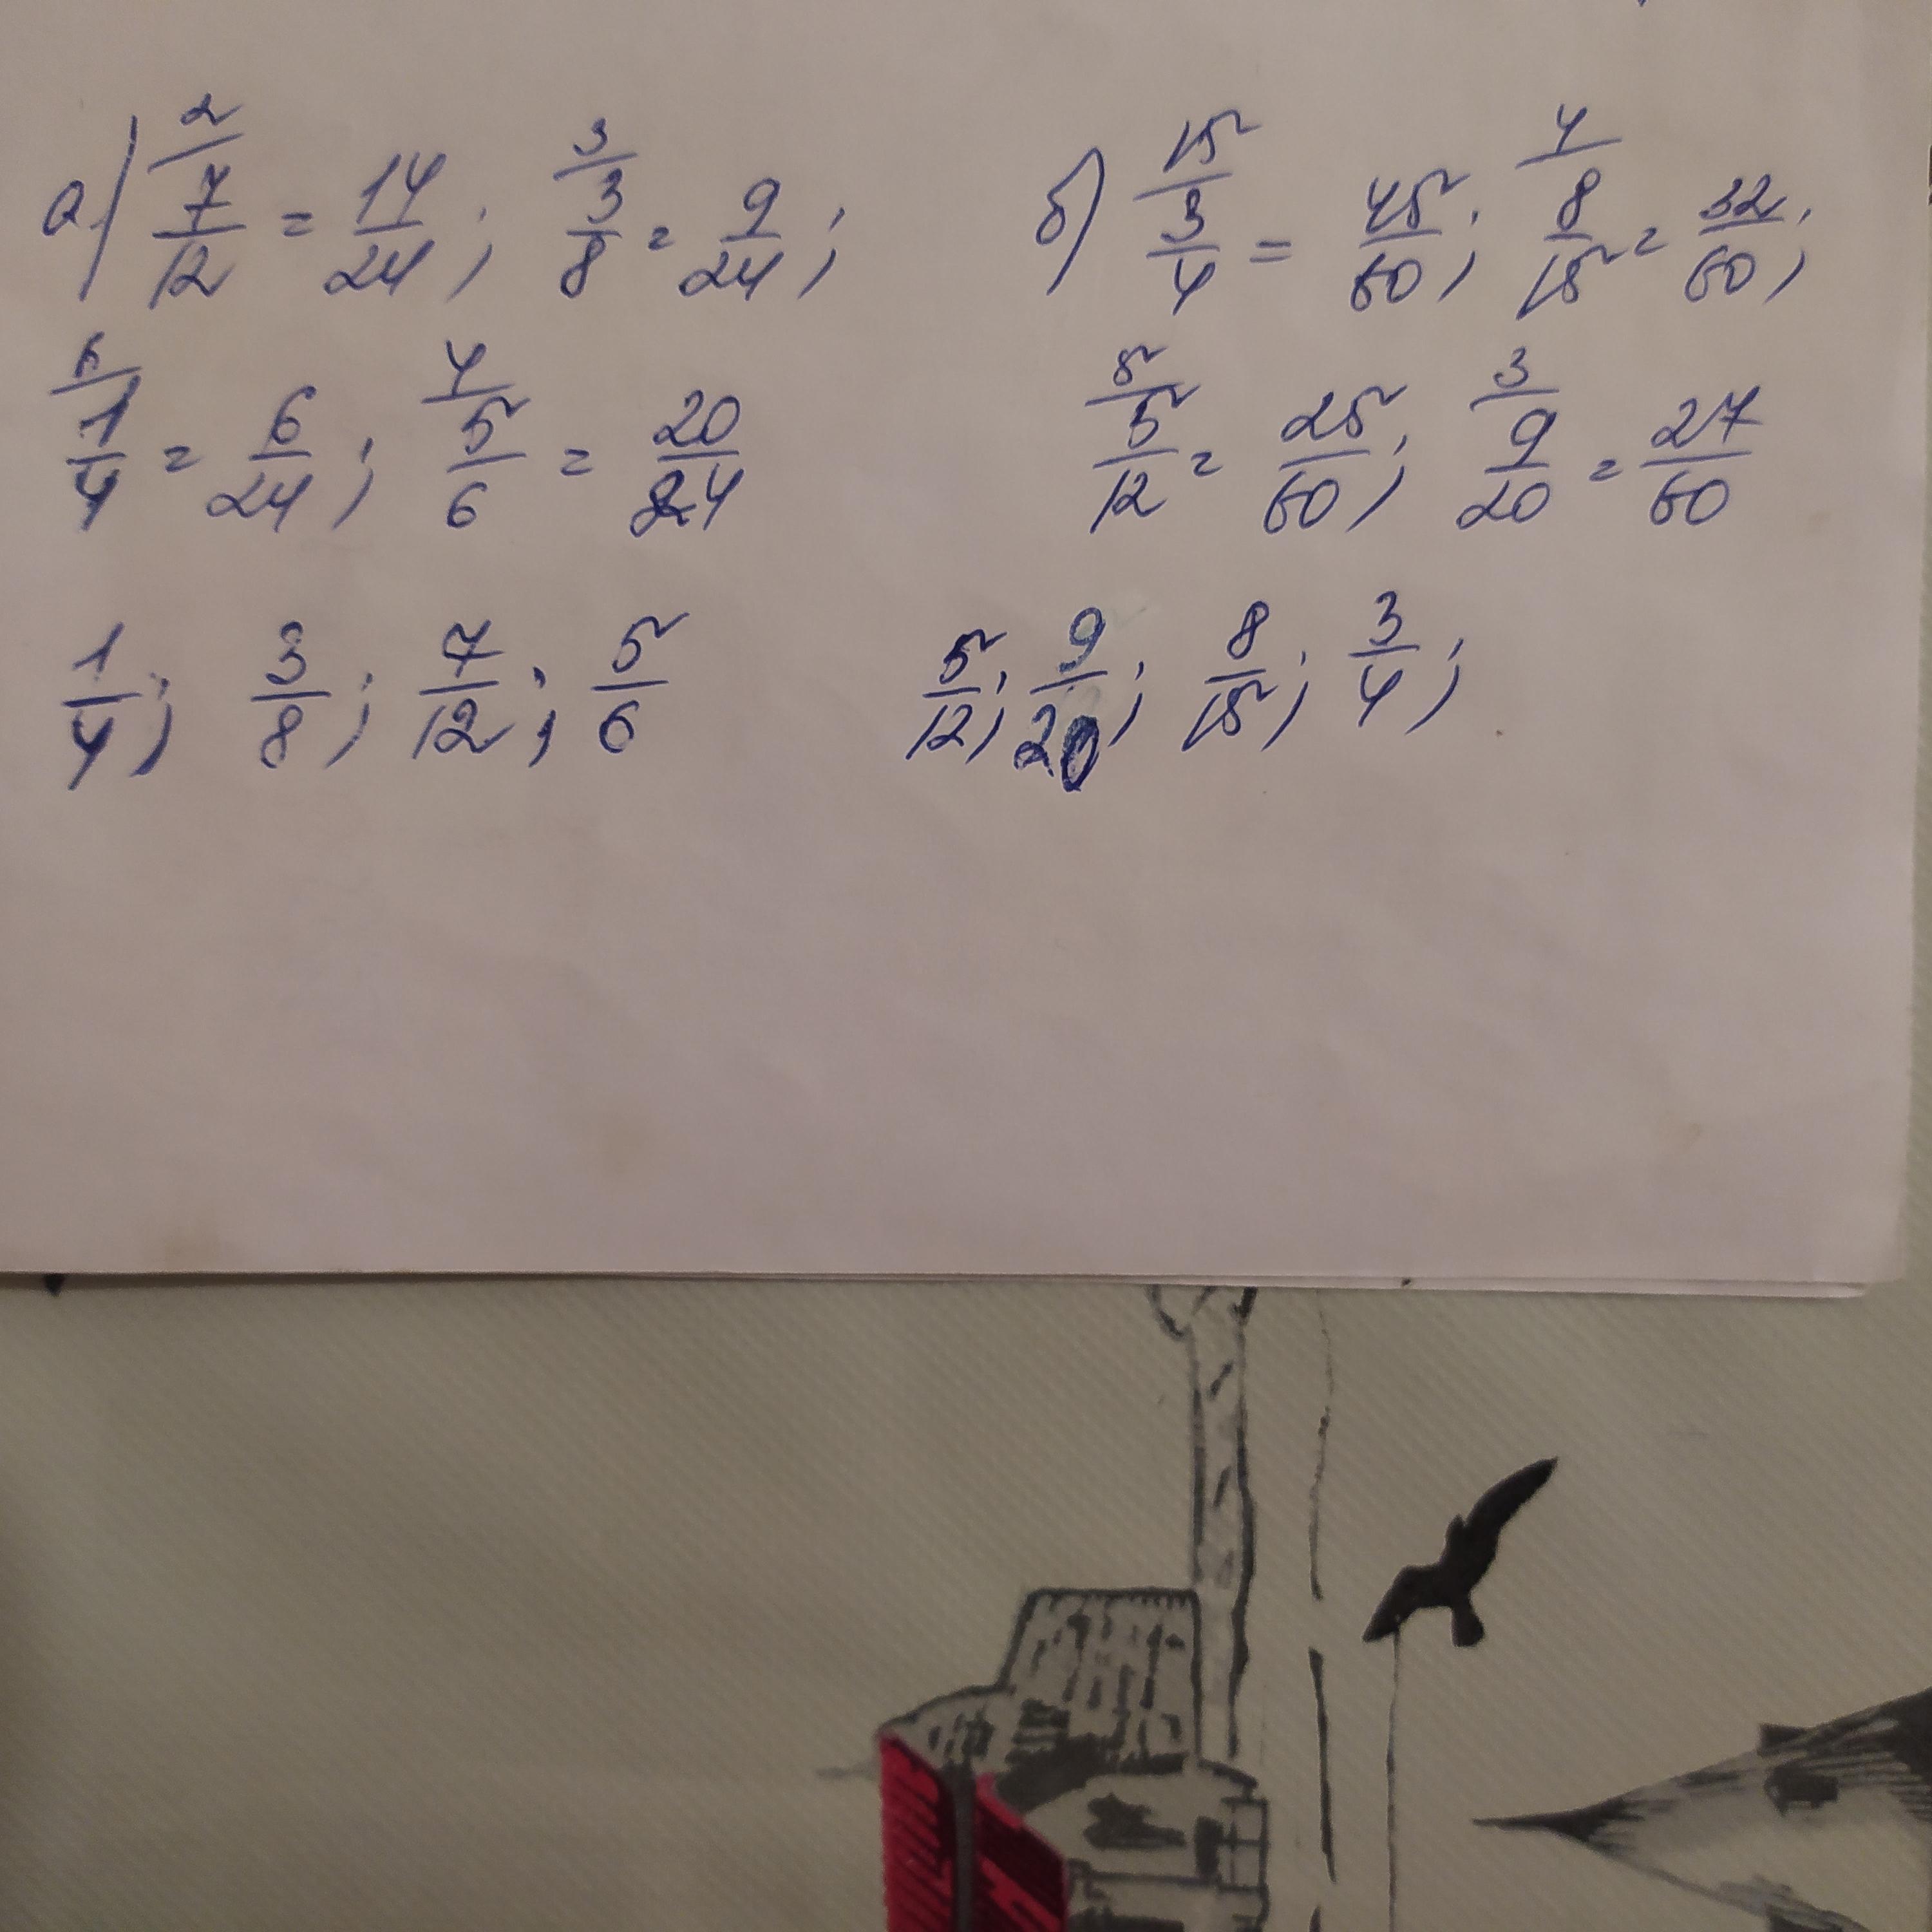 а) 2/ 7/12 = 14/24; 3/ 3/8 = 9/24;
6/ 1/4 = 6/24; 4/ 5/6 = 20/24
1/4; 3/8; 7/12; 5/6
б) 15/ 3/4 = 45/60; 4/ 8/15 = 32/60;
5/ 5/12 = 25/60; 3/ 9/20 = 27/60
5/12; 9/20; 8/15; 3/4;